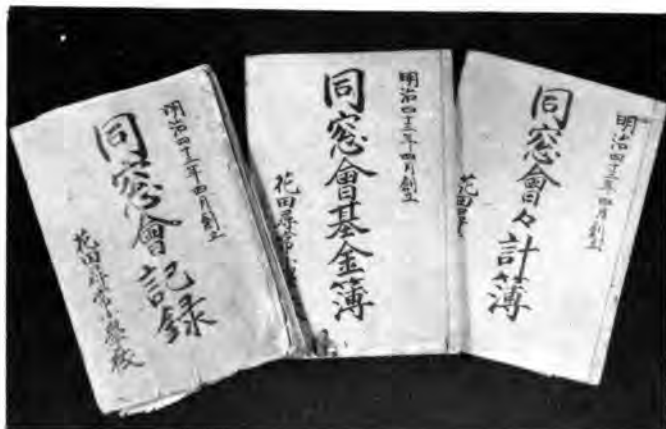 明治四十三年四月創立
同窓會々計簿
花田尋
明治四十三年四月創立
同窓會基金簿
花田尋常小
明治四十三年四月創立
同窓會記録
花田尋常小學校